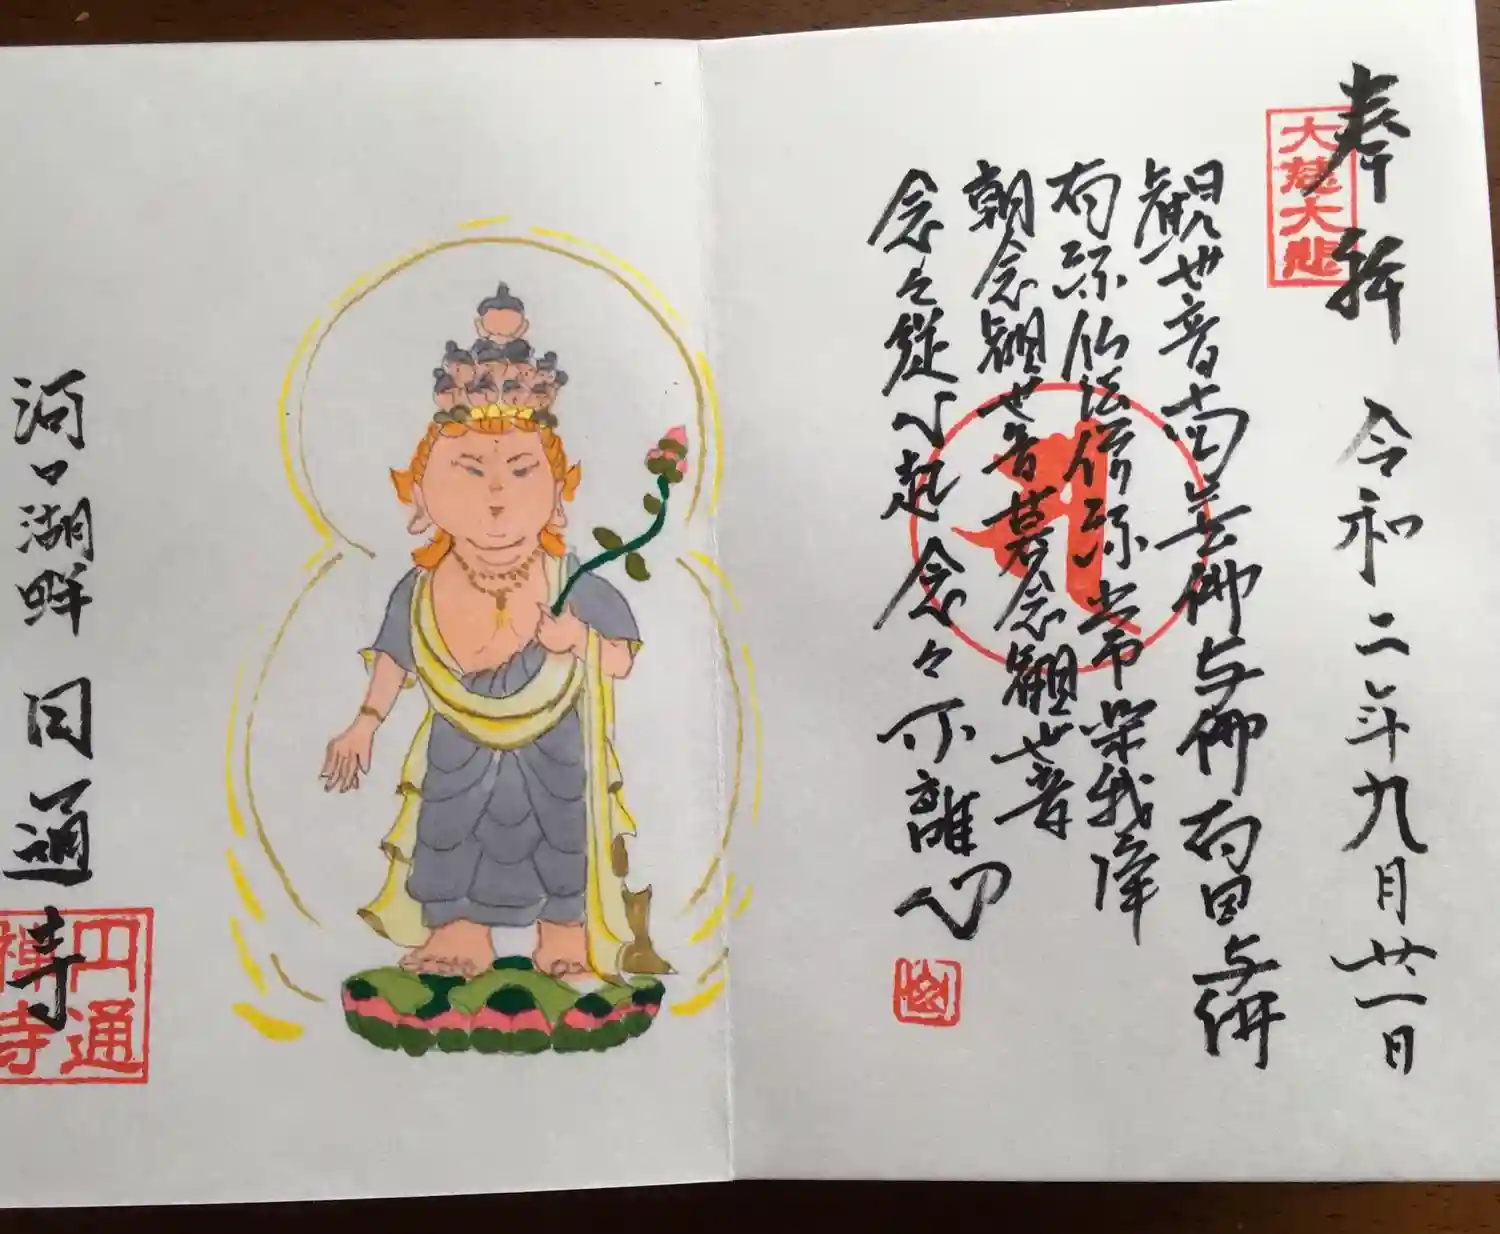 奉拝
令和二年九月廿一日
大慈大悲
観世音南无佛与佛有因与佛
有縁仏法僧縁常楽我浄
朝念観世音暮念観世音
念々従心起念々不離心
河口湖畔 円通寺
円通
禅寺